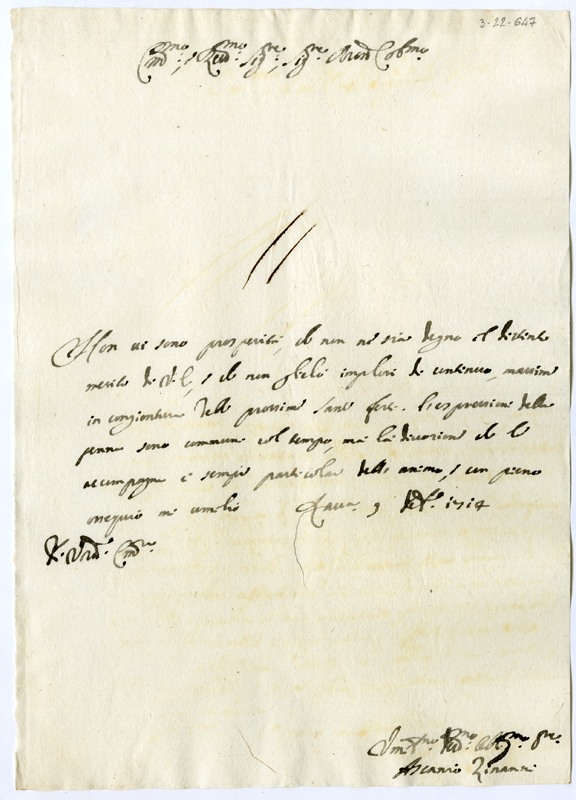 3-22-647
Em.mo, e Rev.mo Sig.re, Sig.re Pron Col.mo
Non vi sono prosperità, che non ne sia degno il distinto
merito di V. E., e che non gliele implori di continuo, massime
in congiontura delle prossime sante feste. L'espressioni della
penna sono communi col tempo, mà la divozione che le
accompagna è sempre particolare dell'animo, e con pieno
ossequio mi umilio Rav.a 9 Xbre 1714
Di V. Em.
Um.mo Dev.mo Obb.mo Ser.e
Ascanio Zinanni